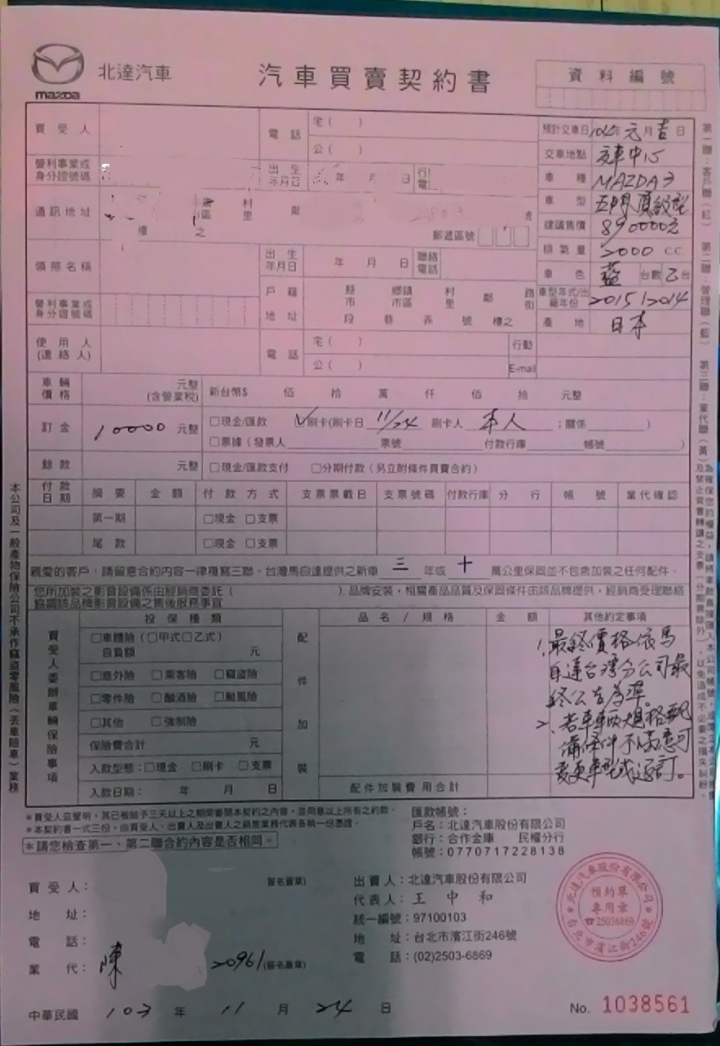 mazda 北達汽車
汽車買賣契約書
資料編號
買受人
電話 宅( )
公( )
預計交車日 104年元月吉日
營利事業或身分證號碼
出生年月日 年 月 日
交車地點 交車中心
車種 MAZDA3
通訊地址
區 村里 鄰
樓之
郵遞區號
車型 五門頂級型
建議售價 890000元
排氣量 2000 CC
領照名稱
出生年月日 年 月 日 聯絡電話
車色 藍 台數 乙台
營利事業或身分證號碼
戶籍地址 縣市 鄉鎮市區 村里 鄰 路街
段 巷 弄 號 樓之
車型年式/出廠年份 2015/2014
產地 日本
使用人(連絡人)
電話 宅( ) 行動
公( ) E-mail
車輛價格 元整(含營業稅) 新台幣$ 佰 拾 萬 仟 佰 拾 元整
訂金 10000 元整 □現金/匯款 ☑刷卡(刷卡日 11/24 刷卡人 本人 ;關係 )
□票據(發票人 票號 付款行庫 帳號 )
餘款 元整 □現金/匯款支付 □分期付款(另立附條件買賣合約)
付款日期 摘要 金額 付款方式 支票票載日 支票號碼 付款行庫 分行 帳號 業代確認
第一期 □現金 □支票
尾款 □現金 □支票
親愛的客戶,請留意合約內容一律複寫三聯。台灣馬自達提供之新車 三 年或 十 萬公里保固並不包含加裝之任何配件。
您所加裝之影音設備係由經銷商委託( )品牌安裝,相關產品品質及保固條件由該品牌提供,經銷商受理聯絡
協調該品牌影音設備之售後服務事宜
買受人委辦車輛保險事項
投保種類
□車體險(□甲式□乙式)
自負額 元
□意外險 □乘客險 □竊盜險
□零件險 □酗酒險 □颱風險
□其他 □強制險
保險費合計 元
入款型態:□現金 □刷卡 □支票
入款日期: 年 月 日
配件加裝
品名/規格 金額
配件加裝費用合計
其他約定事項
1.最終價格依馬
自達台灣分公司最
終公告為準。
2.若車輛規格配
備條件不滿意可
變更車型或退訂。
本公司及一般產物保險公司不承作竊盜零風險(丟車賠車)業務
第一聯:客戶聯(紅) 第二聯:管理聯(藍) 第三聯:業代聯(黃)
*買受人茲聲明,其已被給予三天以上之期間審閱本契約之內容,並同意以上所有之約款。
*本契約書一式三份,由買受人、出賣人及出賣人之銷售業務代表各執一份憑證。
*請您檢查第一、第二聯合約內容是否相同。
匯款帳號:
戶名:北達汽車股份有限公司
銀行:合作金庫 民權分行
帳號:0770717228138
買受人: (簽名蓋章)
地址:
電話:
業代: 陳 20961 (簽名蓋章)
出賣人:北達汽車股份有限公司
代表人:王中和
統一編號:97100103
地址:台北市濱江街246號
電話:(02)2503-6869
北達汽車股份有限公司
預約單
專用章
☎25036869
台北市濱江街246號
中華民國 103 年 11 月 24 日
No. 1038561